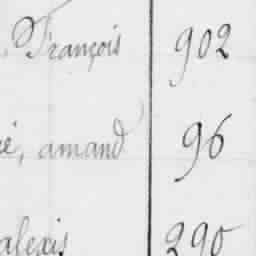 François 902
é, amand 96
alexis 290